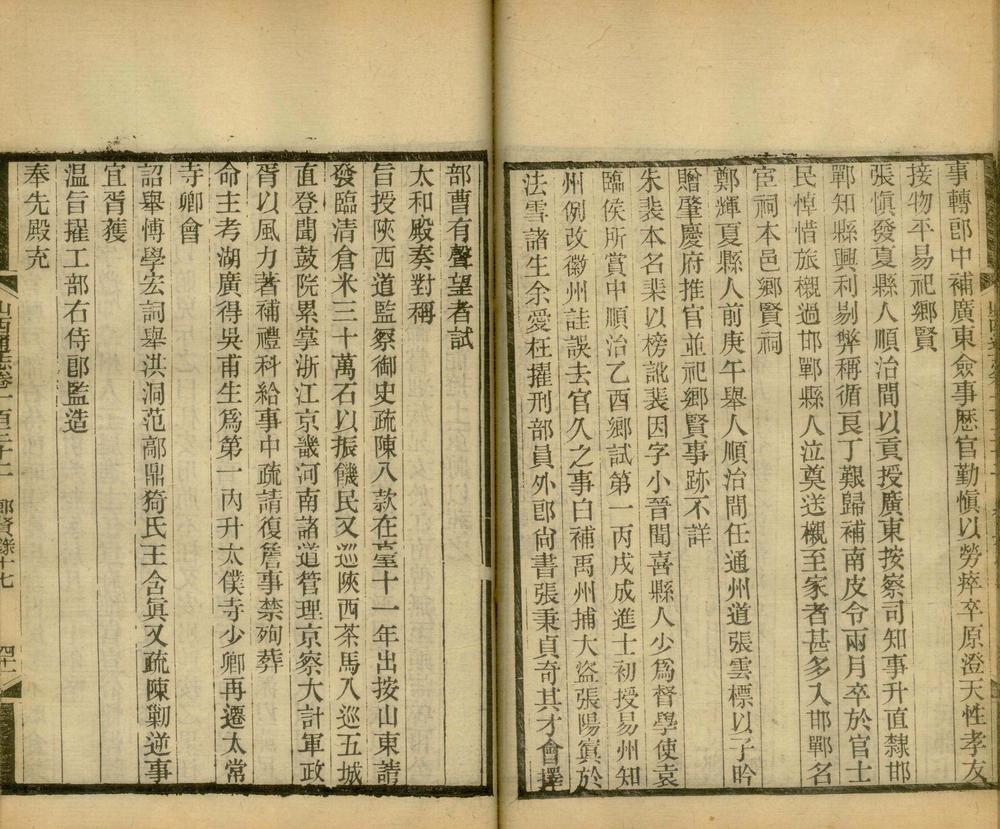 事轉郎中補廣東僉事歷官勤慎以勞瘁卒原澄天性孝友
接物平易祀鄉賢
張愼發夏縣人順治間以貢授廣東按察司知事升直隸邯
鄲知縣興利剔弊稱循良丁艱歸補南皮令兩月卒於官士
民悼惜旅櫬過邯鄲縣人泣奠送櫬至家者甚多入邯鄲名
宦祠本邑鄉賢祠
鄭輝夏縣人前庚午舉人順治間任通州道張雲標以子昑
贈肇慶府推官並祀鄉賢事跡不詳
朱裴本名棐以榜訛裴因字小晉聞喜縣人少爲督學使袁
臨侯所賞中順治乙酉鄉試第一丙戌成進士初授易州知
州例改徽州詿誤去官久之事白補禹州捕大盜張陽寘於
法雪諸生余愛枉擢刑部員外郎尚書張秉貞奇其才會擇
部曹有聲望者試
太和殿奏對稱
旨授陝西道監察御史疏陳八款在臺十一年出按山東請
發臨清倉米三十萬石以振饑民又巡陝西茶馬入巡五城
直登聞鼓院累掌浙江京畿河南諸道管理京察大計軍政
胥以風力著補禮科給事中疏請復詹事禁殉葬
命主考湖廣得吳甫生爲第一內升太僕寺少卿再遷太常
寺卿會
詔舉博學宏詞舉洪洞范鄗鼎猗氏王含眞又疏陳剿逆事
宜胥獲
温旨擢工部右侍郎監造
奉先殿充
山西通志卷一百三十二 鄉賢錄十七